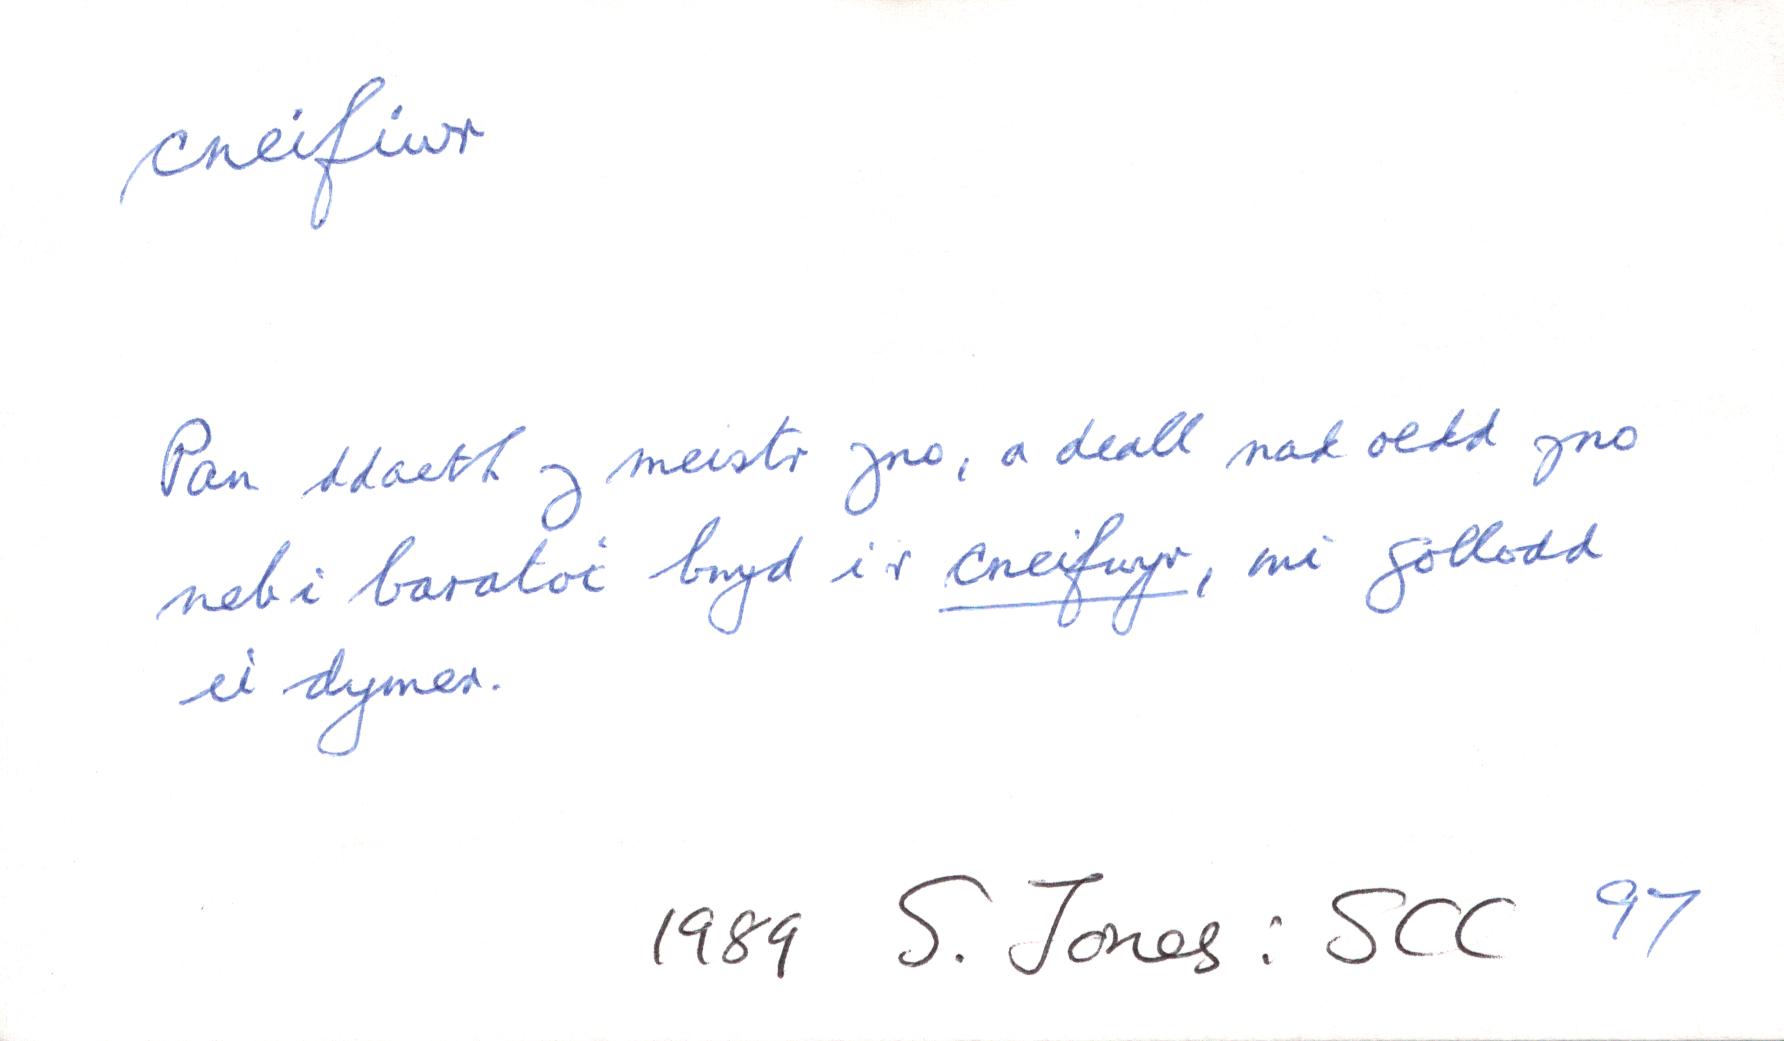 cneifiwr
Pan ddaeth y meistr yno, a deall nad oedd yno
neb i baratoi bwyd i'r cneifwyr, mi gollodd
ei dymer.
1989 S. Jones: SCC 97